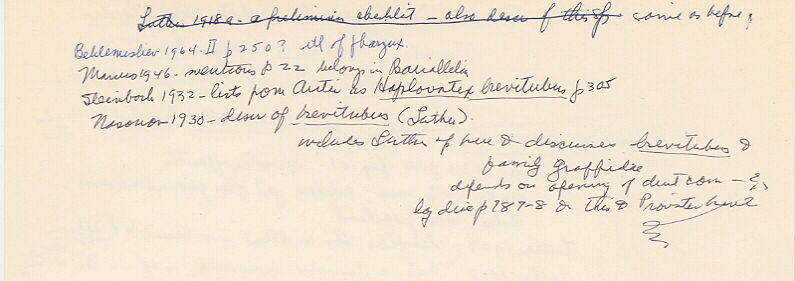 Luther 1918a - a preliminary - also descr of this sp. same as before,
Beklemeshev 1964 - II p 250? ill of pharynx.
Marcus 1946 - mentions p 22 belongs in Baicalellia
Steinbock 1932 - lists from Arctic as Haplovortex brevitubus p 305
Nasonov 1930 - descr of brevitubus (Luther).
includes Luther sp here & discusses brevitubus &
family Graffidae
depends on opening of duct com -
leg disc p 787-8 on this & Provortex